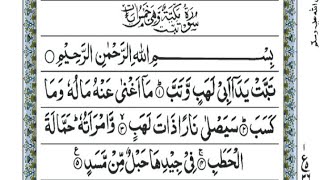 سورة تبت مكية وهي خمس آيات
بِسْمِ اللهِ الرَّحْمٰنِ الرَّحِيْمِ
تَبَّتْ يَدَآ اَبِيْ لَهَبٍ وَّتَبَّ ۝ مَآ اَغْنٰى عَنْهُ مَالُهٗ وَمَا
كَسَبَ ۝ سَيَصْلٰى نَارًا ذَاتَ لَهَبٍ ۝ وَّامْرَاَتُهٗ حَمَّالَةَ
الْحَطَبِ ۝ فِيْ جِيْدِهَا حَبْلٌ مِّنْ مَّسَدٍ ۝